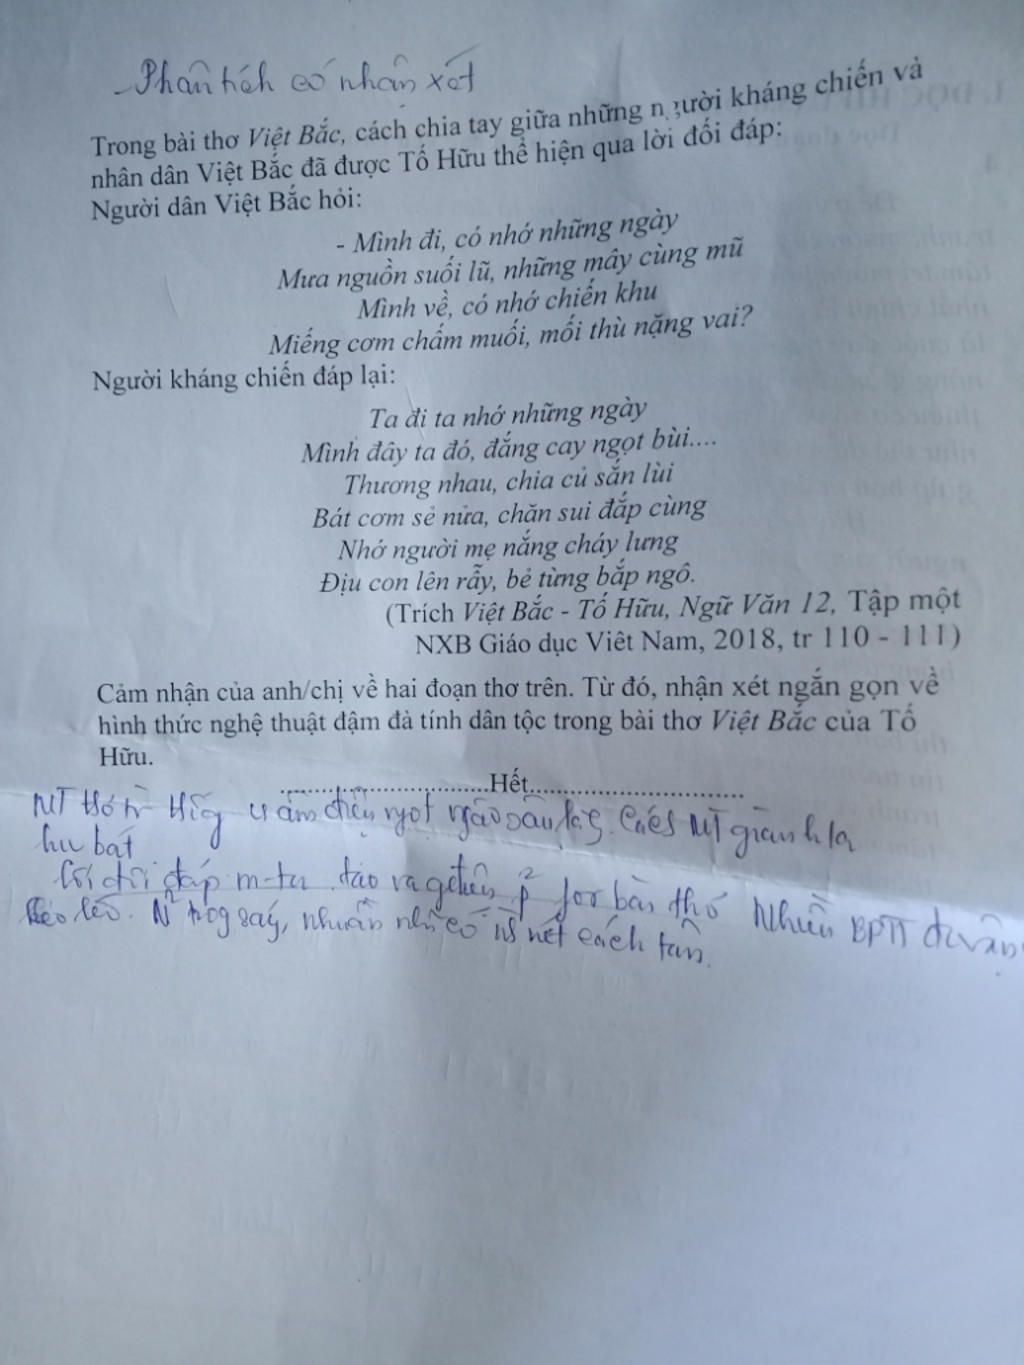 - Phân tích có nhận xét
Trong bài thơ Việt Bắc, cách chia tay giữa những người kháng chiến và
nhân dân Việt Bắc đã được Tố Hữu thể hiện qua lời đối đáp:
Người dân Việt Bắc hỏi:
- Mình đi, có nhớ những ngày
Mưa nguồn suối lũ, những mây cùng mũ
Mình về, có nhớ chiến khu
Miếng cơm chấm muối, mối thù nặng vai?
Người kháng chiến đáp lại:
Ta đi ta nhớ những ngày
Mình đây ta đó, đắng cay ngọt bùi....
Thương nhau, chia củ sắn lùi
Bát cơm sẻ nửa, chăn sui đắp cùng
Nhớ người mẹ nắng cháy lưng
Địu con lên rẫy, bẻ từng bắp ngô.
(Trích Việt Bắc - Tố Hữu, Ngữ Văn 12, Tập một
NXB Giáo dục Viêt Nam, 2018, tr 110 - 111)
Cảm nhận của anh/chị về hai đoạn thơ trên. Từ đó, nhận xét ngắn gọn về
hình thức nghệ thuật đậm đà tính dân tộc trong bài thơ Việt Bắc của Tố
Hữu.
............................Hết............................
NT thơ điệu ngọt ngào sâu lắng NT giành
lục bát
lối đối đáp m-ta bài thơ Nhiều BPTT đc vận
khéo léo. nhuần nhị có nét cách tân.